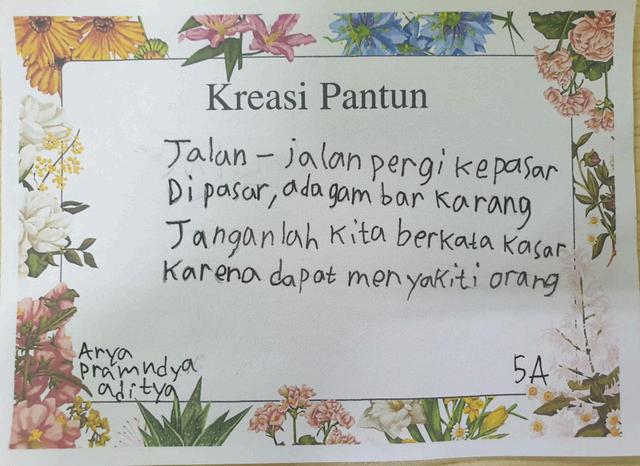 Kreasi Pantun
Jalan - jalan pergi kepasar
Di pasar, ada gambar karang
Janganlah kita berkata kasar
Karena dapat menyakiti orang
Arya
pramndya
aditya
5A